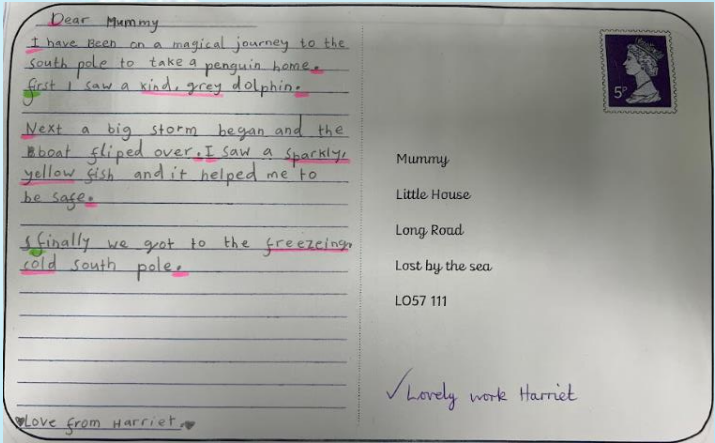 Dear Mummy
I have Been on a magical journey to the
south pole to take a penguin home.
first I saw a kind, grey dolphin.
Next a big storm began and the
boat fliped over. I saw a sparkly,
yellow fish and it helped me to
be safe.
finally we got to the freezeing,
cold south pole.
Love from Harriet.
5P
Mummy
Little House
Long Road
Lost by the sea
LO57 111
✓ Lovely work Harriet